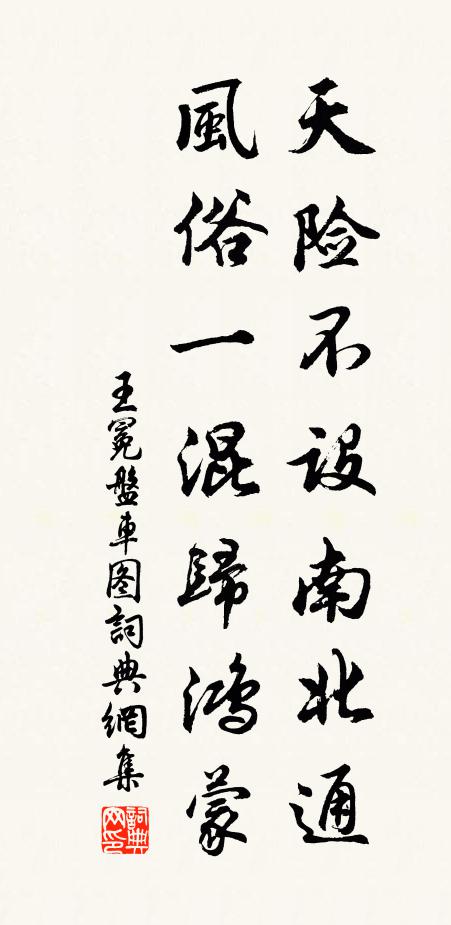 天险不设南北通
風俗一混歸鴻蒙
王冕盤車图詞典網集
詞典
网印